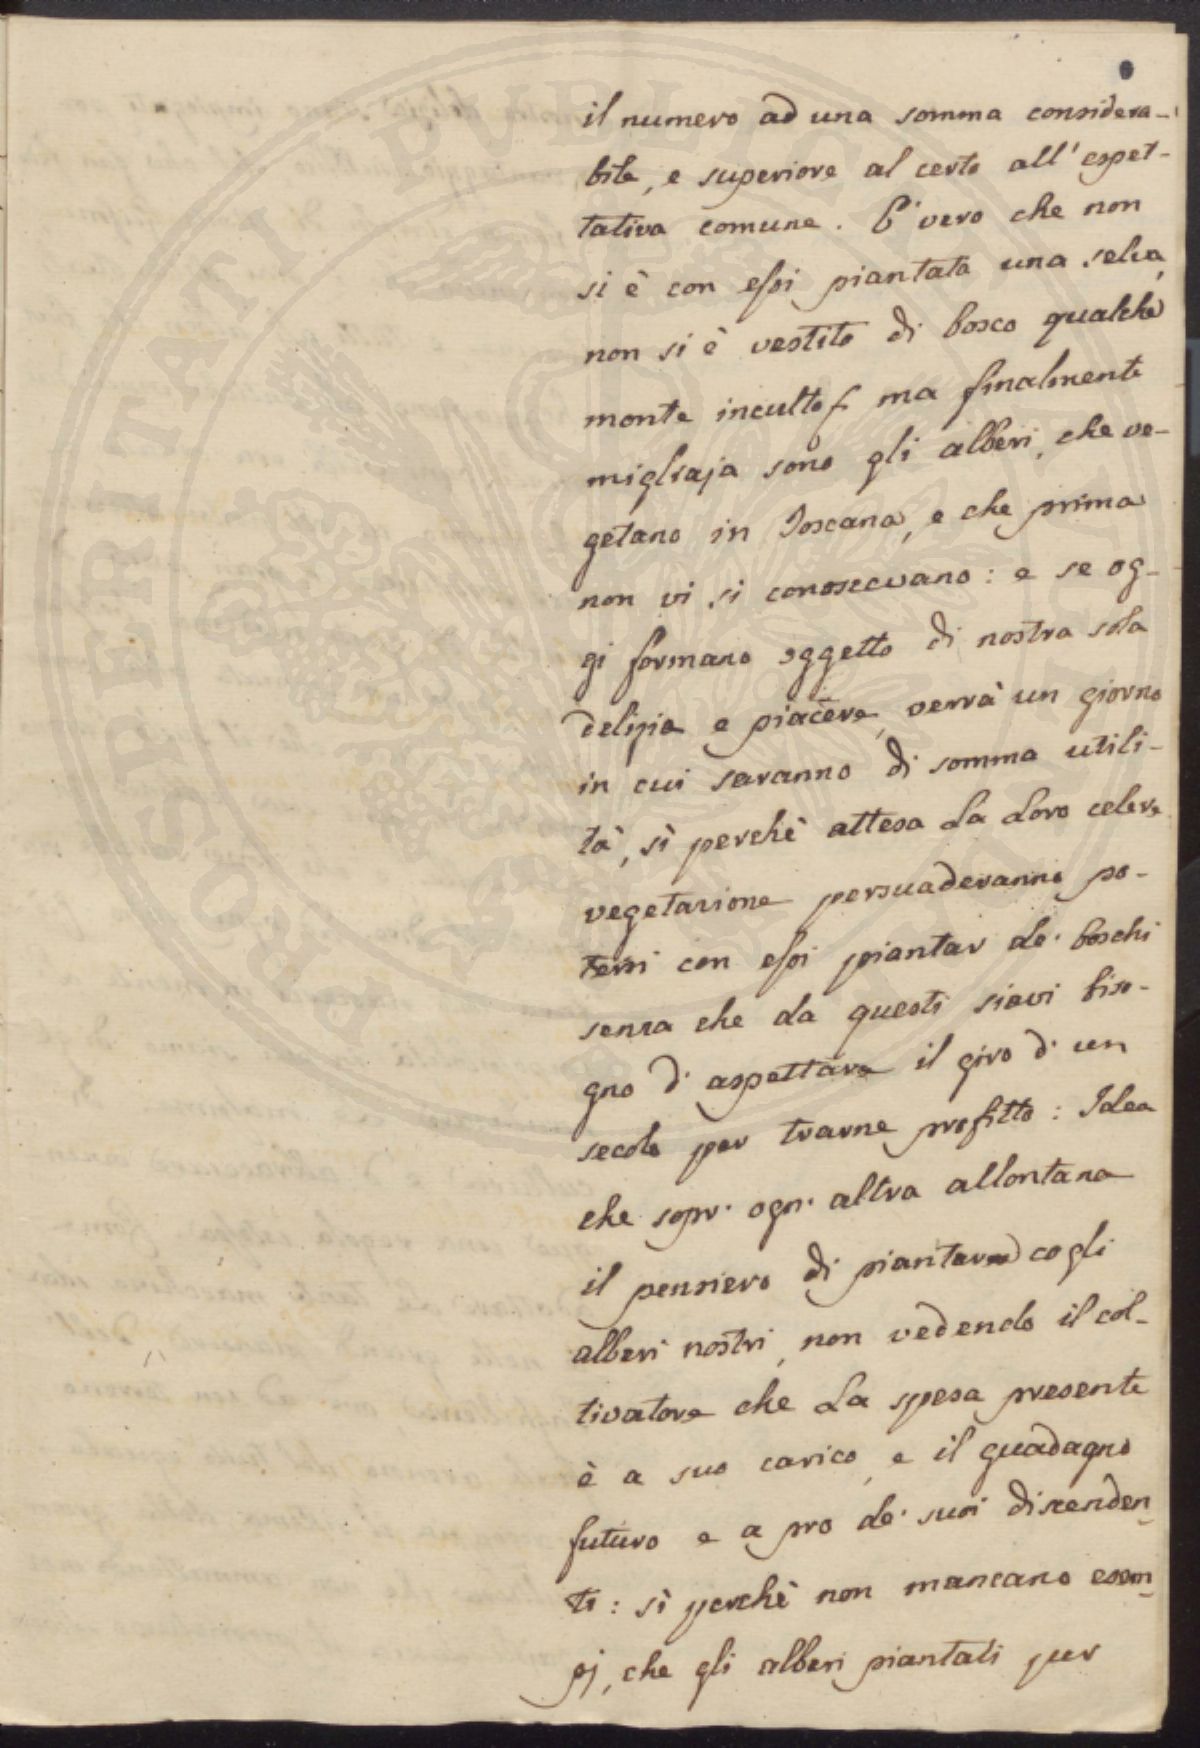 il numero ad una somma considera-
bile, e superiore al certo all'espet-
tativa comune. E' vero che non
si è con essi piantata una selva,
non si è vestito di bosco qualche
monte inculto, ma finalmente
migliaja sono gli alberi, che ve-
getano in Toscana, e che prima
non vi si conoscevano: e se og-
gi formano oggetto di nostra sola
delizia e piacere, verrà un giorno
in cui saranno di somma utili-
tà, sì perchè attesa la loro celere
vegetazione persuaderanno po-
tersi con essi piantar de' boschi
senza che da questi siavi biso-
gno d'aspettare il giro d'un
secolo per trarne profitto: Idea
che sopr' ogn' altra allontana
il pensiero di piantare cogli
alberi nostri, non vedendo il col-
tivatore che la spesa presente
è a suo carico, e il guadagno
futuro e a pro de' suoi discenden-
ti: sì perchè non mancano esem-
pj, che gli alberi piantati per
PROSPERITATI PVBLICAE